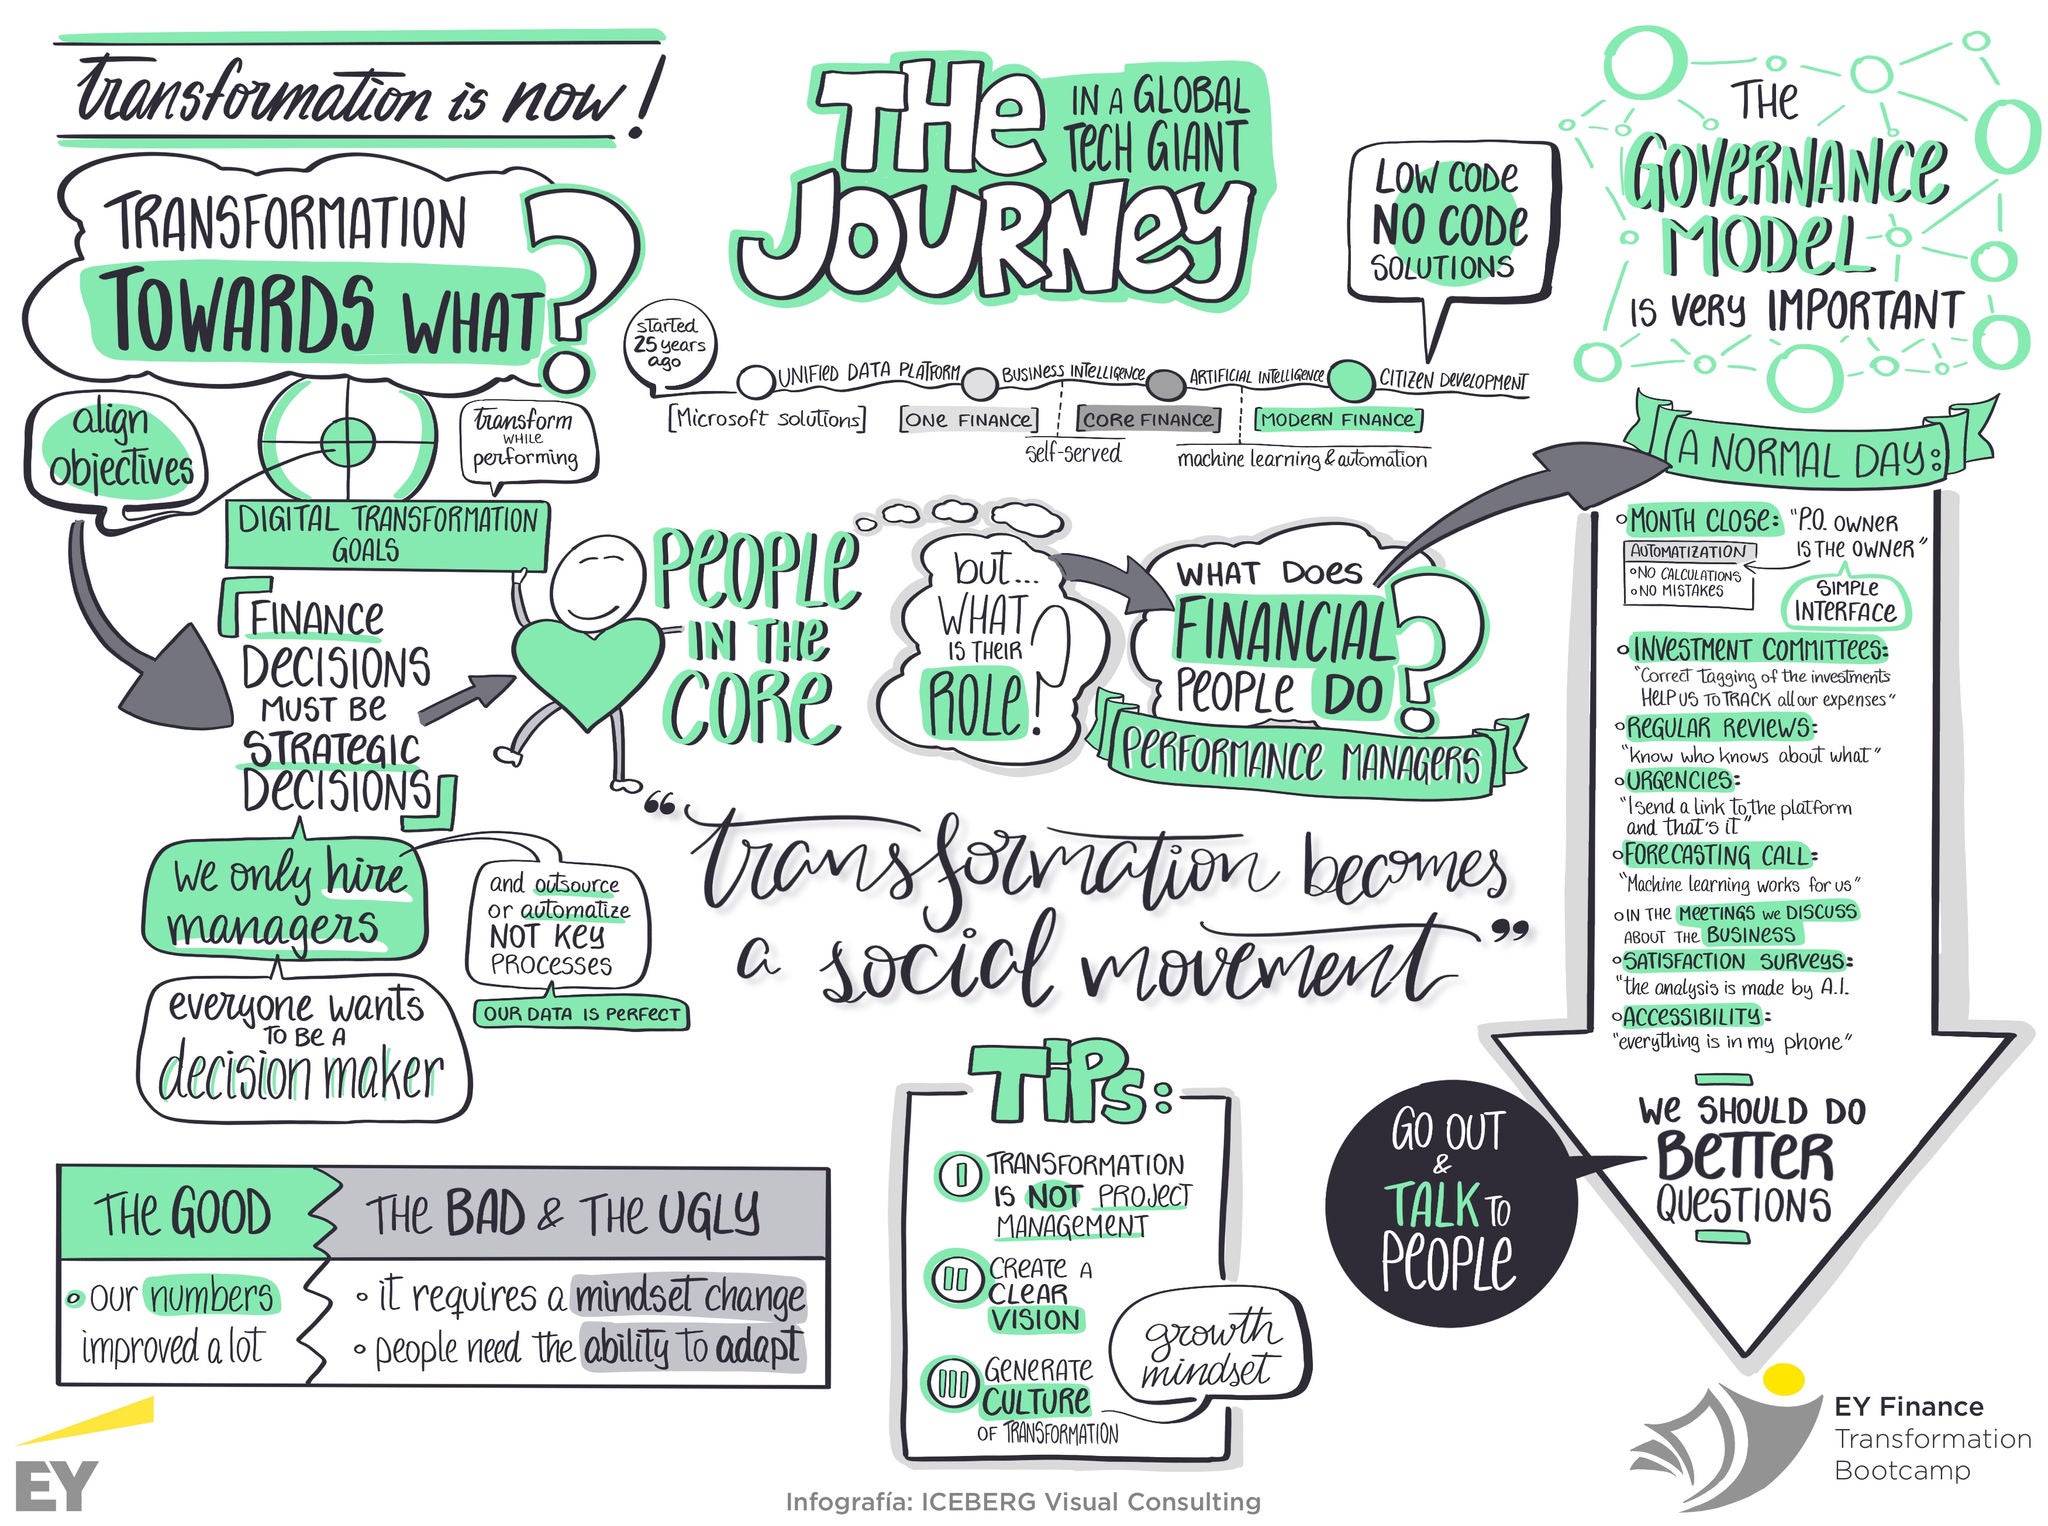 transformation is now!
TRANSFORMATION
TOWARDS WHAT?
align
objectives
transform
WHILE
performing
DIGITAL TRANSFORMATION
GOALS
FINANCE
DECISIONS
MUST BE
STRATEGIC
DECISIONS
we only hire
managers
and outsource
or automatize
NOT KEY
PROCESSES
OUR DATA IS PERFECT
everyone wants
TO BE A
decision maker
THE
JOURNEY
IN A GLOBAL
TECH GIANT
started
25 years
ago
UNIFIED DATA PLATFORM
BUSINESS INTELLIGENCE
ARTIFICIAL INTELLIGENCE
CITIZEN DEVELOPMENT
[Microsoft solutions]
[ONE FINANCE]
[CORE FINANCE]
[MODERN FINANCE]
self-served
machine learning & automation
LOW CODE
NO CODE
SOLUTIONS
PEOPLE
IN THE
CORE
but...
WHAT
IS THEIR
ROLE?
WHAT DOES
FINANCIAL
PEOPLE DO?
PERFORMANCE MANAGERS
“transformation becomes
a social movement”
THE
GOVERNANCE
MODEL
IS VERY IMPORTANT
A NORMAL DAY:
MONTH CLOSE: "P.O. OWNER
IS THE OWNER"
AUTOMATIZATION
NO CALCULATIONS
NO MISTAKES
SIMPLE
INTERFACE
INVESTMENT COMMITTEES:
"Correct tagging of the investments
HELP US TO TRACK all our expenses"
REGULAR REVIEWS:
"Know who knows about what"
URGENCIES:
"I send a link to the platform
and that's it"
FORECASTING CALL:
"Machine learning works for us"
IN THE MEETINGS WE DISCUSS
ABOUT THE BUSINESS
SATISFACTION SURVEYS:
"the analysis is made by A.I.
ACCESSIBILITY:
"everything is in my phone"
WE SHOULD DO
BETTER
QUESTIONS
GO OUT
&
TALK TO
PEOPLE
TIPS:
I TRANSFORMATION
IS NOT PROJECT
MANAGEMENT
II CREATE A
CLEAR
VISION
III GENERATE
CULTURE
OF TRANSFORMATION
growth
mindset
THE GOOD
our numbers
improved a lot
THE BAD & THE UGLY
it requires a mindset change
people need the ability to adapt
EY
Infografía: ICEBERG Visual Consulting
EY Finance
Transformation
Bootcamp